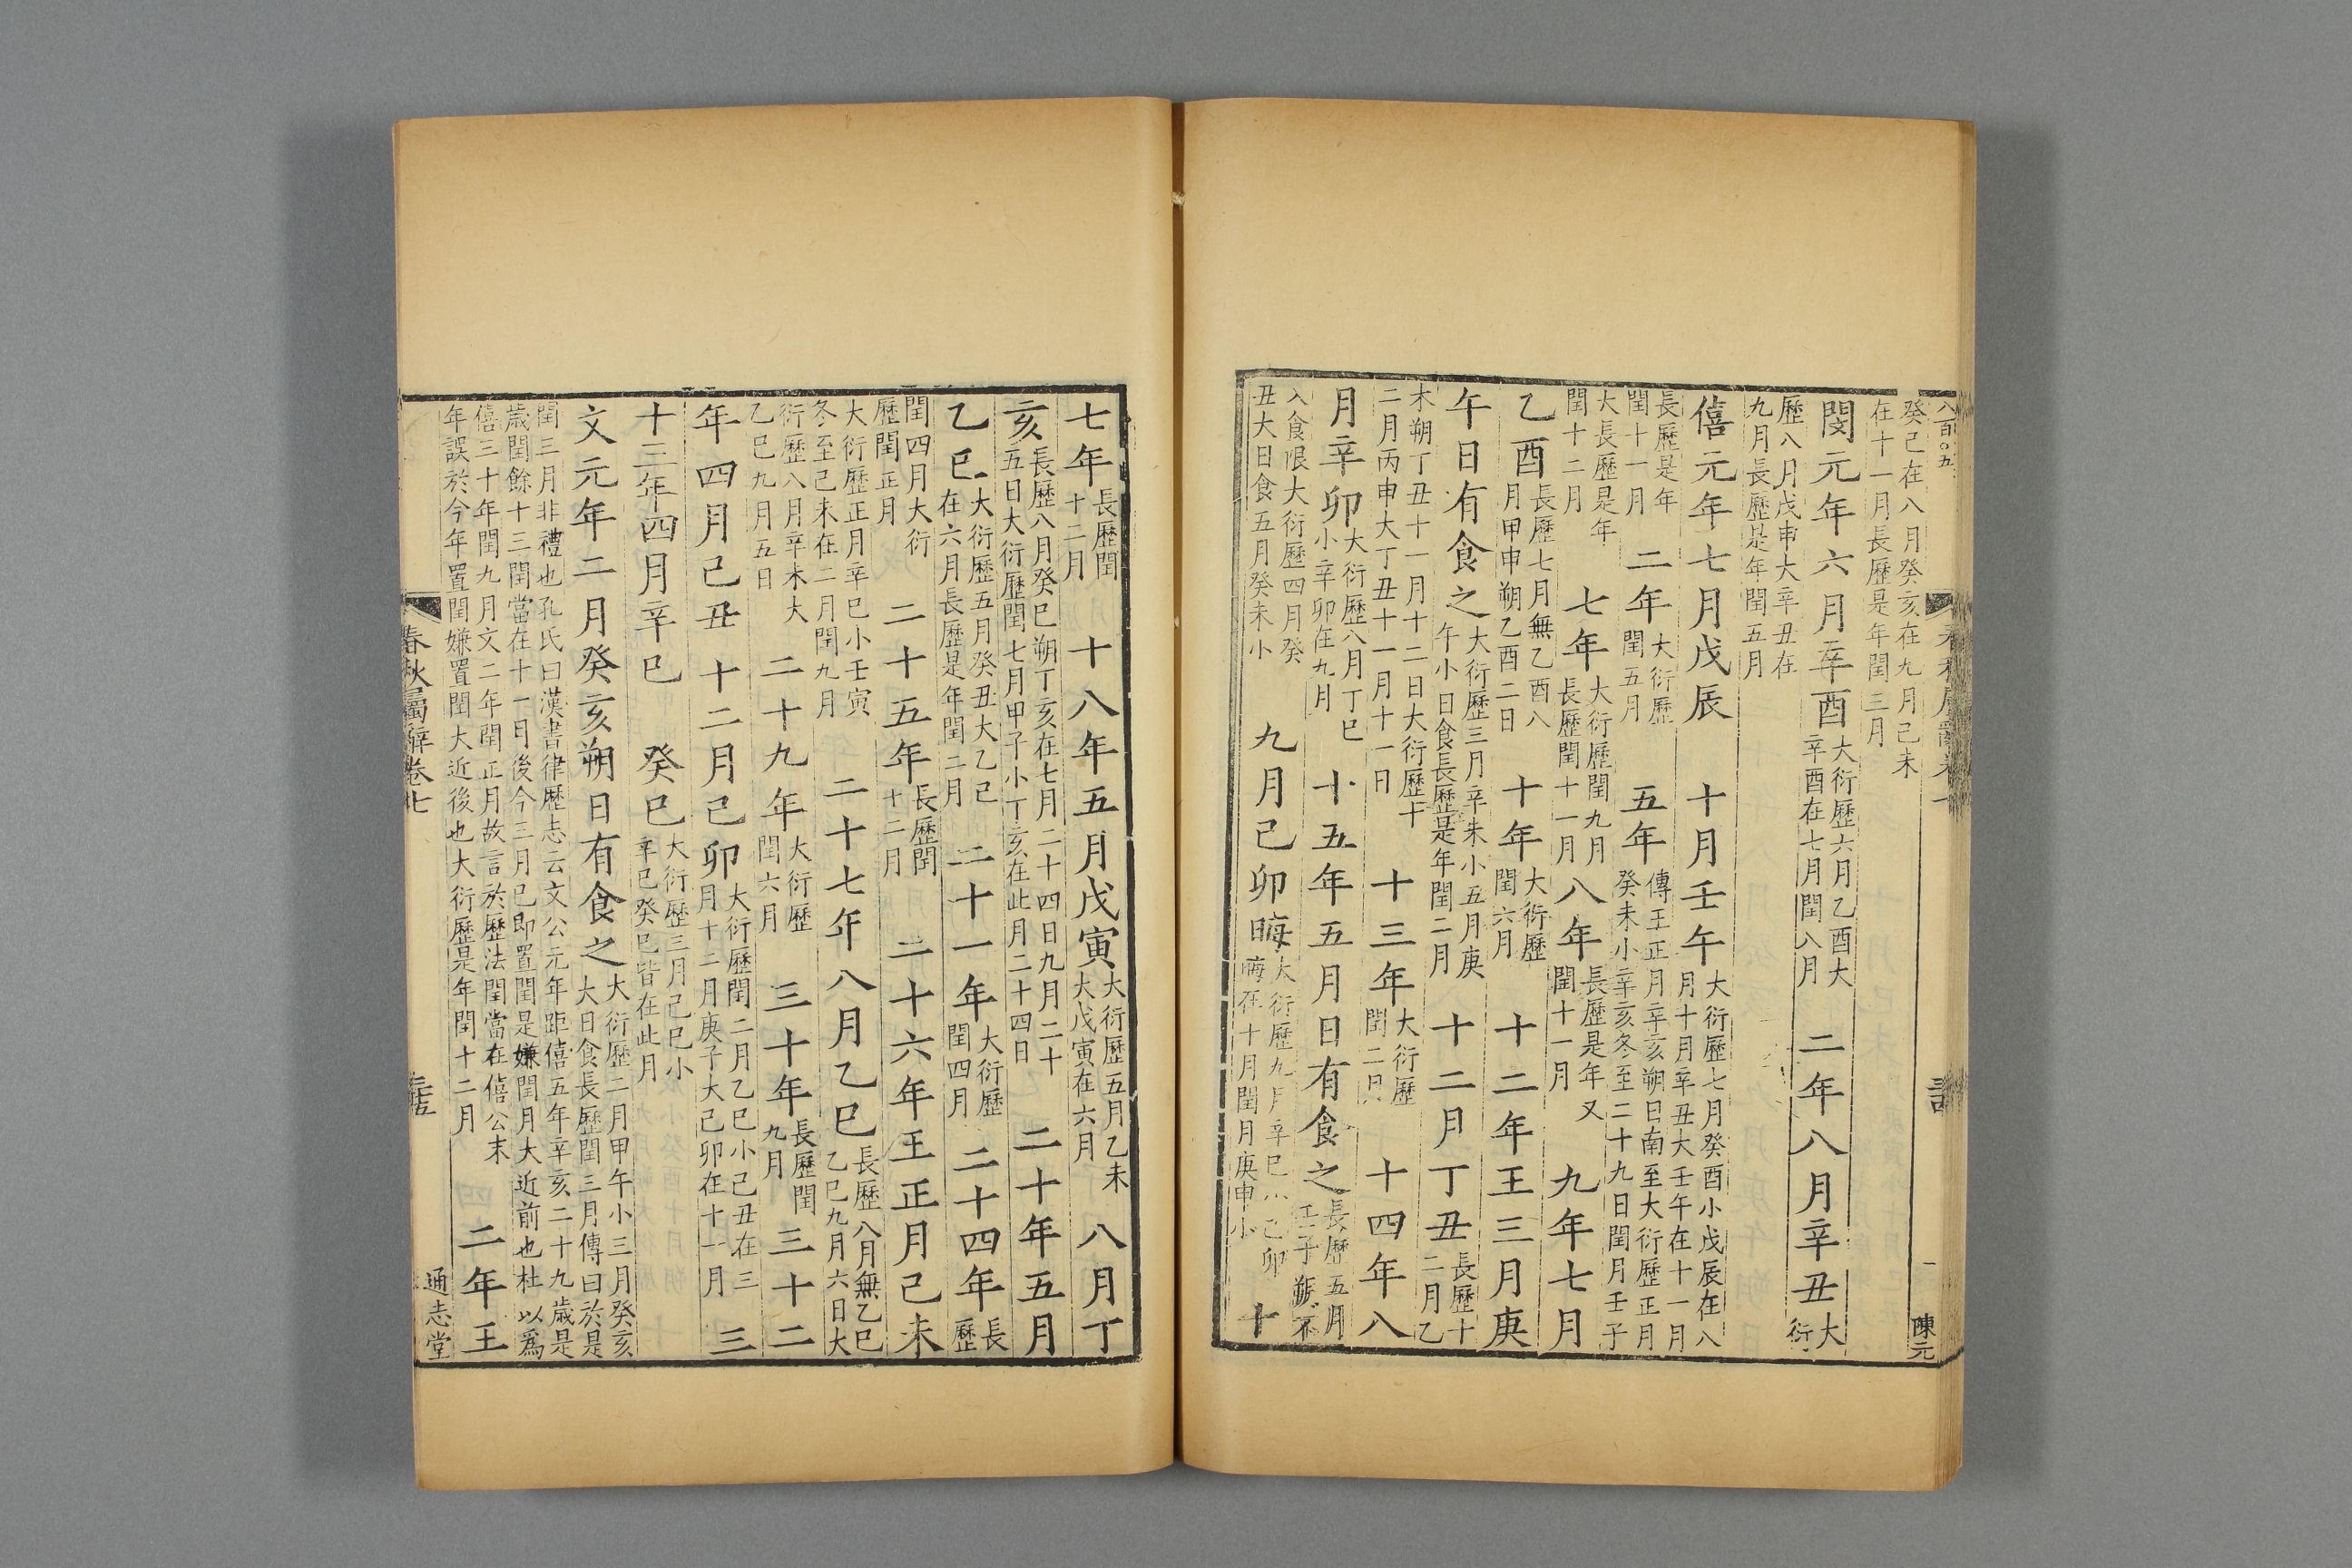 八百〇五
陳元
癸巳在八月癸亥在九月己未
在十一月長歷是年閏三月
閔元年六月辛酉 大衍歷六月乙酉大
辛酉在七月閏八月 二年八月辛丑 大
衍
歷八月戊申大辛丑在
九月長歷是年閏五月
僖元年七月戊辰 十月壬午 大衍歷七月癸酉小戊辰在八
月十月辛丑大壬午在十一月
長歷是年
閏十一月 二年 大衍歷
閏五月 五年 傳王正月辛亥朔日南至大衍歷正月
癸未小辛亥冬至二十九日閏月壬子
大長歷是年
閏十二月 七年 大衍歷閏九月
長歷閏十一月 八年 長歷是年又
閏十一月 九年七月
乙酉 長歷七月無乙酉八
月甲申朔乙酉二日 十年 大衍歷
閏六月 十二年王三月庚
午日有食之 大衍歷三月辛未小五月庚
午小日食長歷是年閏二月 十二月丁丑 長歷十
二月乙
未朔丁丑十一月十二日大衍歷十
二月丙申大丁丑十一月十一日 十三年 大衍歷
閏二月 十四年八
月辛卯 大衍歷八月丁巳
小辛卯在九月 十五年五月日有食之 長歷五月
壬子朔不
入食限大衍歷四月癸
丑大日食五月癸未小 九月己卯晦 大衍歷九月辛巳小己卯
晦在十月閏月庚申小 十
七年 長歷閏
十二月 十八年五月戊寅 大衍歷五月乙未
大戊寅在六月 八月丁
亥 長歷八月癸巳朔丁亥在七月二十四日九月二十
五日大衍歷閏七月甲子小丁亥在此月二十四日 二十年五月
乙巳 大衍歷五月癸丑大乙巳
在六月長歷是年閏二月 二十一年 大衍歷
閏四月 二十四年 長
歷
閏四月大衍
歷閏正月 二十五年 長歷閏
十二月 二十六年王正月己未
大衍歷正月辛巳小壬寅
冬至己未在二月閏九月 二十七年八月乙巳 長歷八月無乙巳
乙巳九月六日大
衍歷八月辛未大
乙巳九月五日 二十九年 大衍歷
閏六月 三十年 長歷閏
九月 三十二
年四月己丑 十二月己卯 大衍歷閏二月乙巳小己丑在三
月十二月庚子大己卯在十一月 三
十三年四月辛巳 癸巳 大衍歷三月己巳小
辛巳癸巳皆在此月
文元年二月癸亥朔日有食之 大衍歷二月甲午小三月癸亥
大日食長歷閏三月傳曰於是
閏三月非禮也孔氏曰漢書律歷志云文公元年距僖五年辛亥二十九歲是
歲閏餘十三閏當在十一月後今三月已即置閏是嫌閏月大近前也杜以爲
僖三十年閏九月文二年閏正月故言於歷法閏當在僖公末
年誤於今年置閏嫌置閏大近後也大衍歷是年閏十二月 二年王
春秋屬辭卷七
通志堂